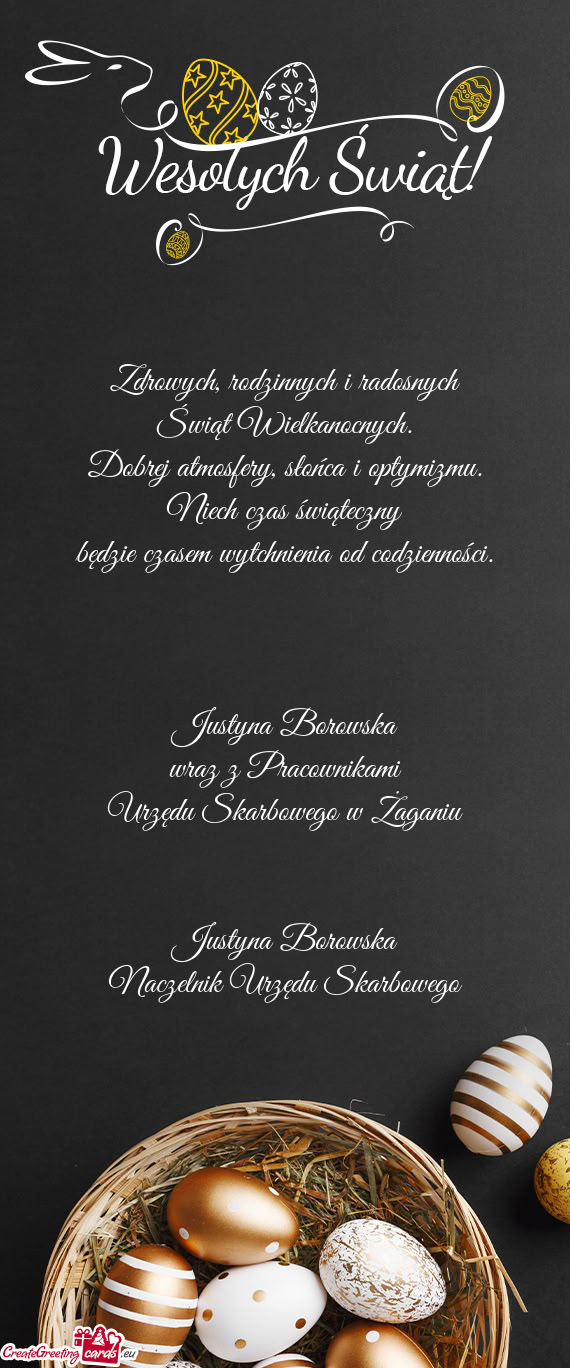 Wesołych Świąt!
Zdrowych, rodzinnych i radosnych
Świąt Wielkanocnych.
Dobrej atmosfery, słońca i optymizmu.
Niech czas świąteczny
będzie czasem wytchnienia od codzienności.
Justyna Borowska
wraz z Pracownikami
Urzędu Skarbowego w Żaganiu
Justyna Borowska
Naczelnik Urzędu Skarbowego
CreateGreeting cards.eu